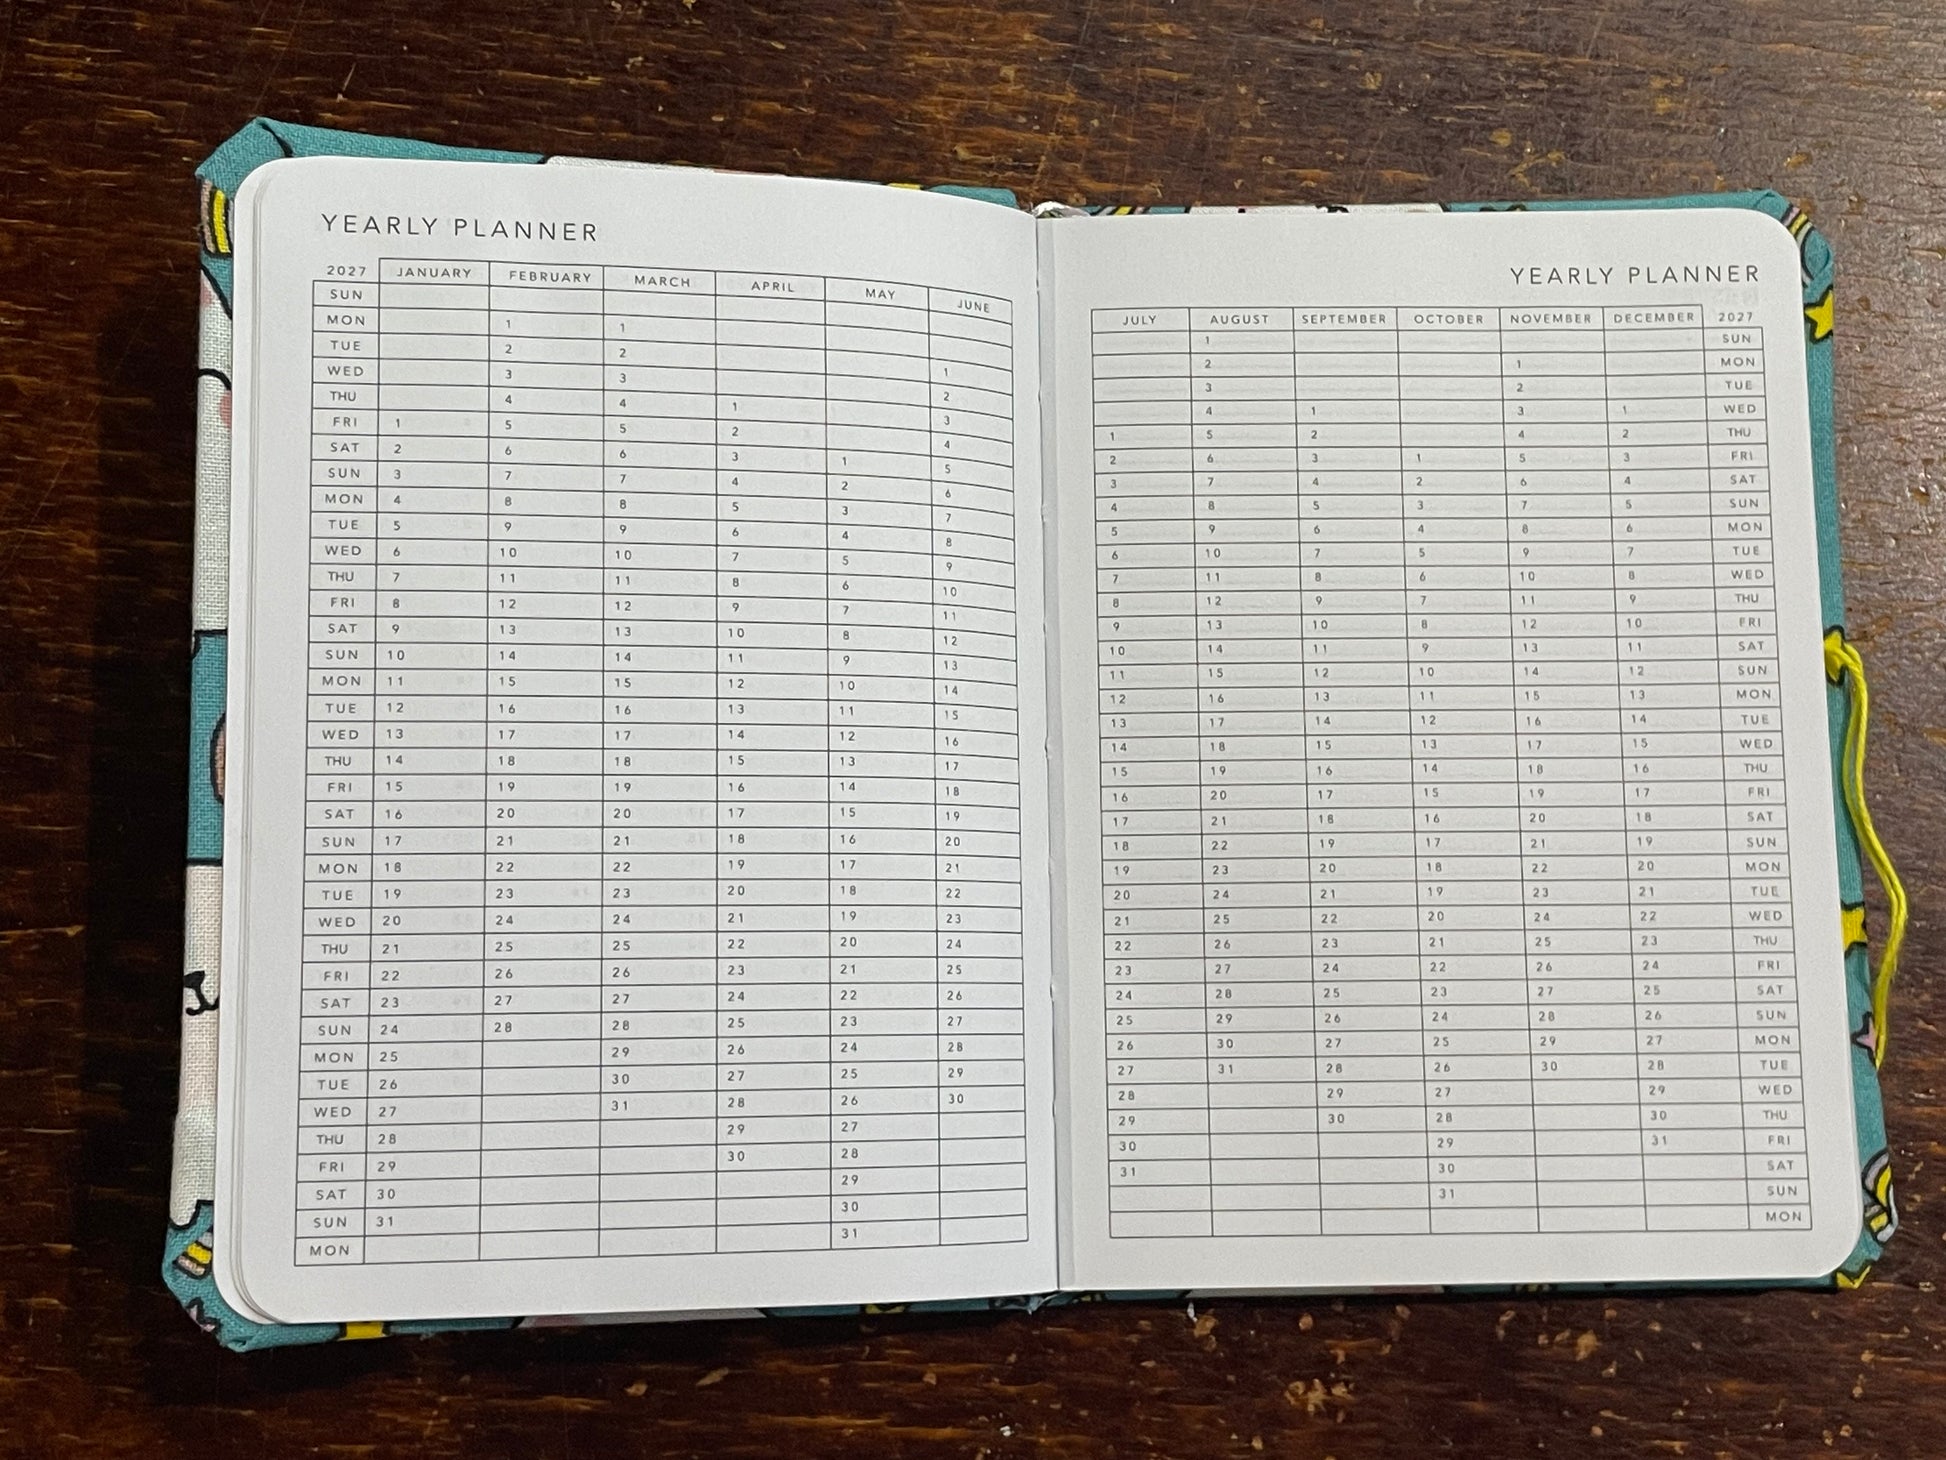 YEARLY PLANNER
2027 JANUARY FEBRUARY MARCH APRIL MAY JUNE
SUN
MON 1 1
TUE 2 2 1
WED 3 3 2
THU 4 4 1 3
FRI 1 5 5 2 4
SAT 2 6 6 3 1 5
SUN 3 7 7 4 2 6
MON 4 8 8 5 3 7
TUE 5 9 9 6 4 8
WED 6 10 10 7 5 9
THU 7 11 11 8 6 10
FRI 8 12 12 9 7 11
SAT 9 13 13 10 8 12
SUN 10 14 14 11 9 13
MON 11 15 15 12 10 14
TUE 12 16 16 13 11 15
WED 13 17 17 14 12 16
THU 14 18 18 15 13 17
FRI 15 19 19 16 14 18
SAT 16 20 20 17 15 19
SUN 17 21 21 18 16 20
MON 18 22 22 19 17 21
TUE 19 23 23 20 18 22
WED 20 24 24 21 19 23
THU 21 25 25 22 20 24
FRI 22 26 26 23 21 25
SAT 23 27 27 24 22 26
SUN 24 28 28 25 23 27
MON 25 29 26 24 28
TUE 26 30 27 25 29
WED 27 31 28 26 30
THU 28 29 27
FRI 29 30 28
SAT 30 29
SUN 31 30
MON 31
YEARLY PLANNER
JULY AUGUST SEPTEMBER OCTOBER NOVEMBER DECEMBER 2027
1 SUN
2 1 MON
3 2 TUE
4 1 3 1 WED
1 5 2 4 2 THU
2 6 3 1 5 3 FRI
3 7 4 2 6 4 SAT
4 8 5 3 7 5 SUN
5 9 6 4 8 6 MON
6 10 7 5 9 7 TUE
7 11 8 6 10 8 WED
8 12 9 7 11 9 THU
9 13 10 8 12 10 FRI
10 14 11 9 13 11 SAT
11 15 12 10 14 12 SUN
12 16 13 11 15 13 MON
13 17 14 12 16 14 TUE
14 18 15 13 17 15 WED
15 19 16 14 18 16 THU
16 20 17 15 19 17 FRI
17 21 18 16 20 18 SAT
18 22 19 17 21 19 SUN
19 23 20 18 22 20 MON
20 24 21 19 23 21 TUE
21 25 22 20 24 22 WED
22 26 23 21 25 23 THU
23 27 24 22 26 24 FRI
24 28 25 23 27 25 SAT
25 29 26 24 28 26 SUN
26 30 27 25 29 27 MON
27 31 28 26 30 28 TUE
28 29 27 29 WED
29 30 28 30 THU
30 29 31 FRI
31 30 SAT
31 SUN
MON